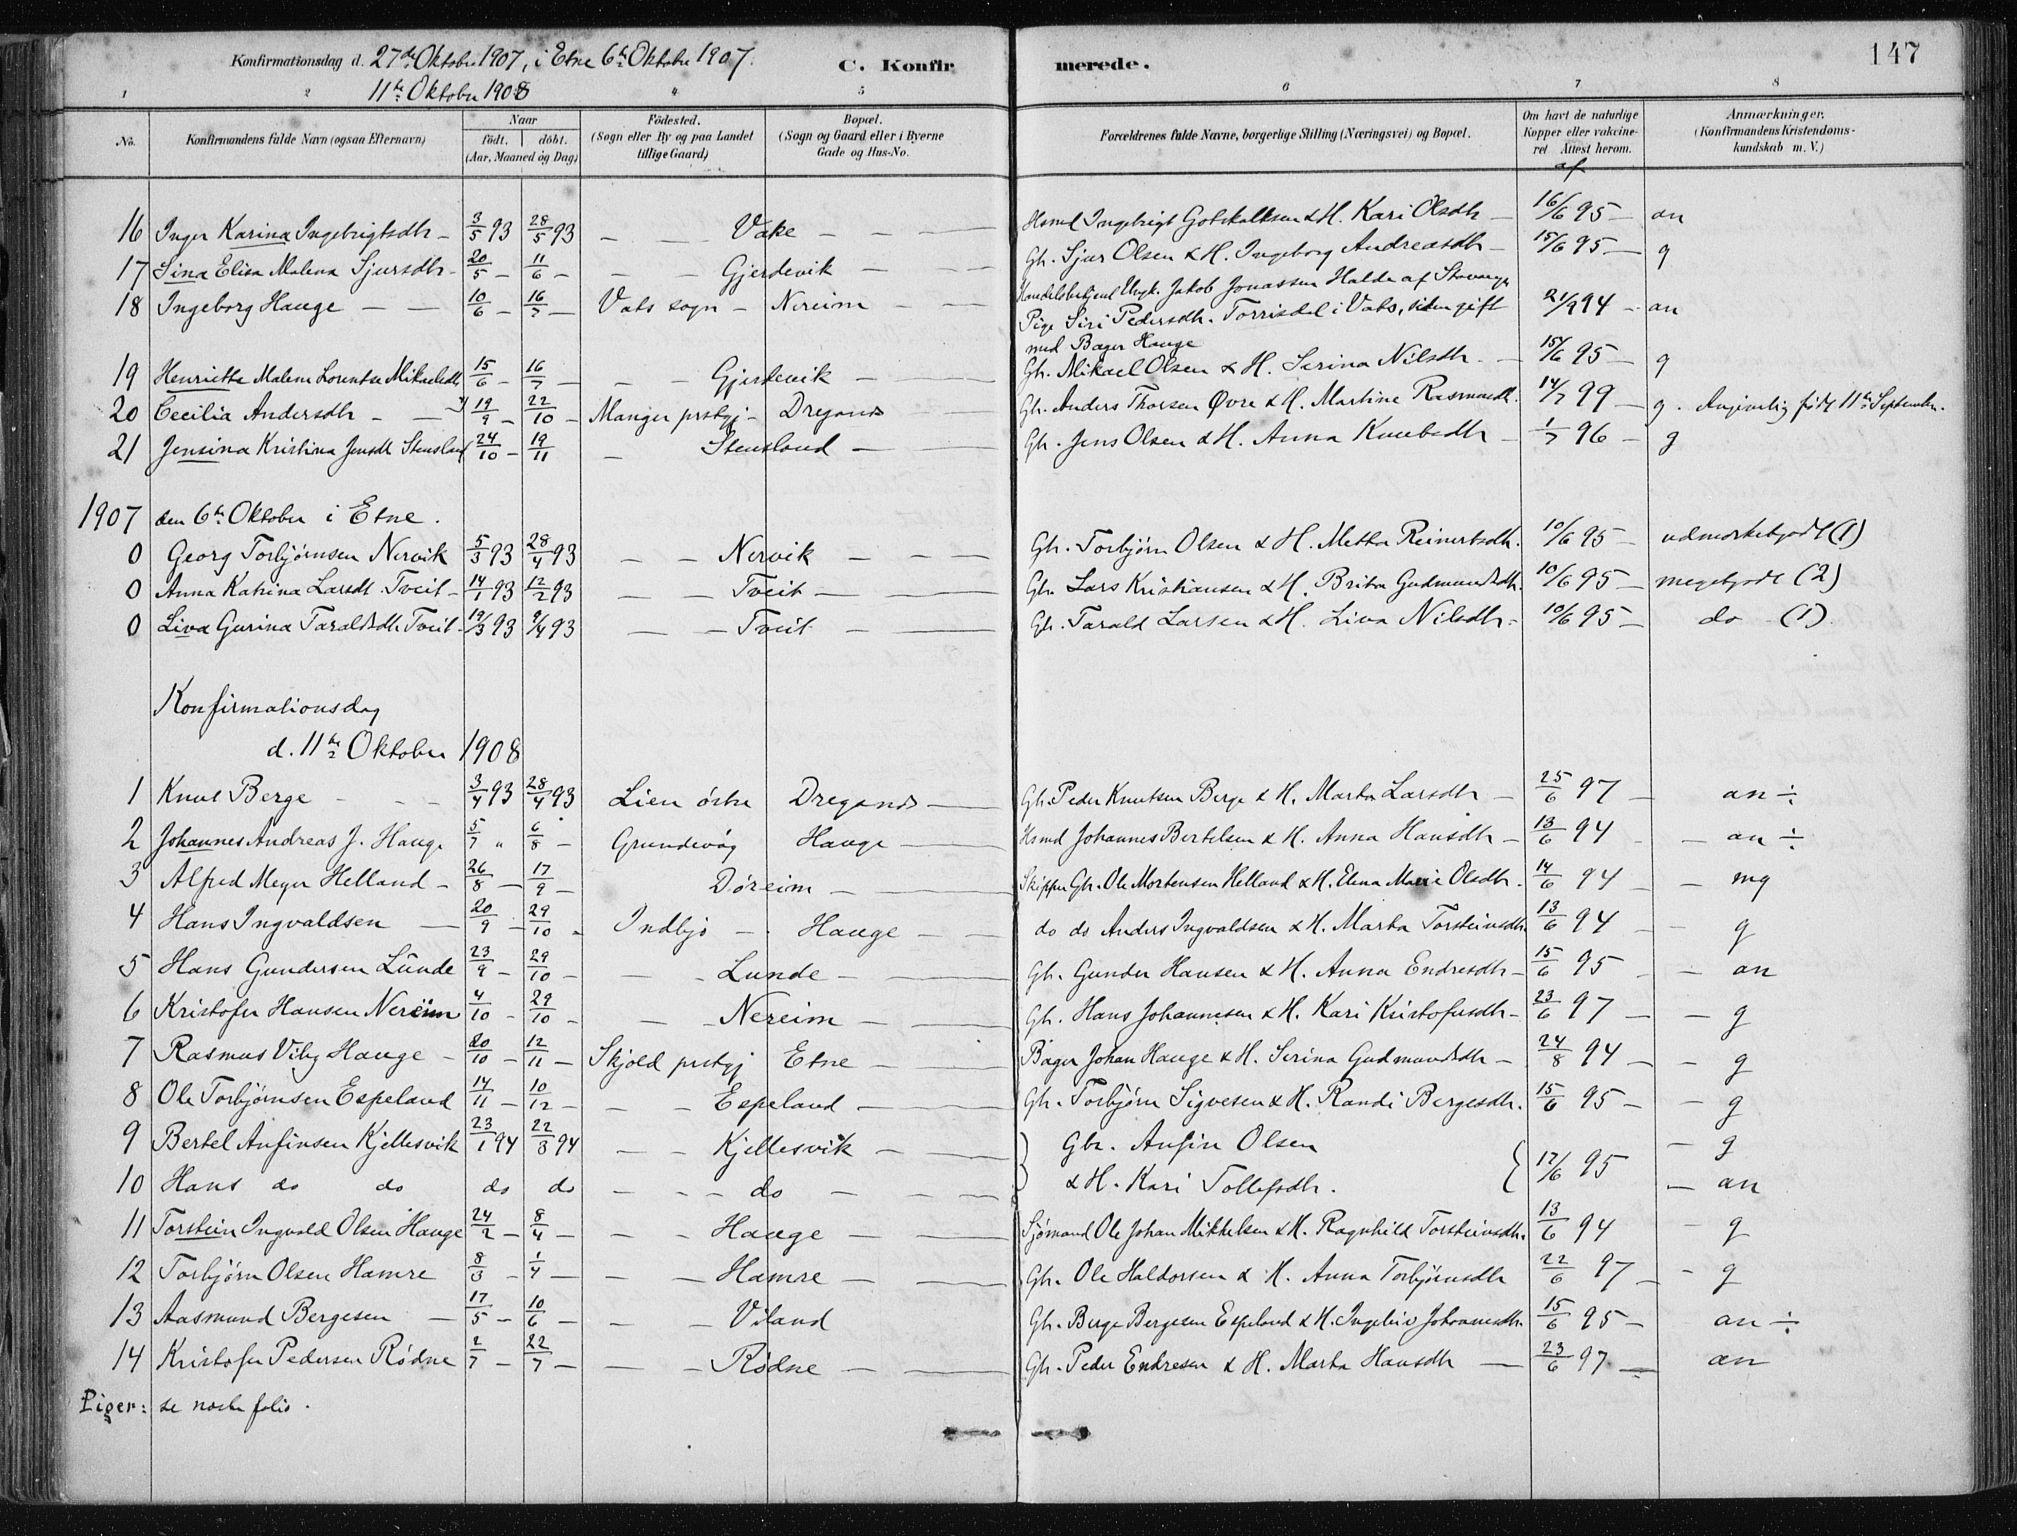 147
Konfirmationsdag d. 27de Oktober 1907, i Etne 6te Oktober 1907.
11te Oktober 1908
C. Konfirmerede.
1 2 4 5 6 7 8
No. Konfirmandens fulde Navn (ogsaa Efternavn) Naar født. døbt. (Aar, Maaned og Dag) Fødested. (Sogn eller By og paa Landet tillige Gaard) Bopæl. (Sogn og Gaard eller i Byerne Gade og Hus-No. Forældrenes fulde Navne, borgerlige Stilling (Næringsvei) og Bopæl. Om havt de naturlige Kopper eller vakcineret Attest herom. Anmærkninger. (Konfirmandens Kristendomskundskab m. V.)
af
16 Inger Karina Ingebrigtsdtr - 3/5 93 28/5 93 - - Vake - - Hsmd Ingebrigt Gotskalksen & H. Kari Olsdtr - 16/6 95 - an
17 Sina Elisa Malena Sjursdtr - 20/5 - 11/6 - - - Gjerdevik - - Gbr. Sjur Olsen & H. Ingeborg Andreasdtr - 15/6 95 - g
18 Ingeborg Hauge - - 10/6 - 16/7 - Vats sogn - Nereim - - Handelsbetjent Ungk. Jakob Jonassen Halde af Stavanger
Pige Siri Pedersdtr. Torrisdal i Vats, siden gift 21/9 94 - an
med Bager Hauge
19 Henrietta Malene Lorentse Mikaelsdtr 15/6 - 16/7 - - - Gjerdevik - - Gbr. Mikael Olsen & H. Serina Nilsdtr. - 15/6 95 - g
20 Cecilia Andersdtr - - 19/9 - 22/10 - Manger prstgj - Dreganes - Gbr. Anders Thorsen Øvre & H. Martine Rasmusdtr. 14/7 99 - g. Angivelig født 11te September.
21 Jensina Kristina Jensdtr Stensland 24/10 - 19/11 - Stensland - - Gbr. Jens Olsen & H. Anna Knutsdtr - 1/7 96 - g
1907 den 6te Oktober i Etne.
0 Georg Torbjørnsen Nervik 5/3 93 28/4 93 - - Nervik - - Gbr. Torbjørn Olsen & H. Metta Reinertsdtr. 10/6 95 - udmerketgodt (1)
0 Anna Katrina Larsdt. Tveit - 14/1 93 12/2 93 - - Tveit - - Gbr. Lars Kristiansen & H. Brita Gudmundsdtr. 10/6 95 - megetgodt (2)
0 Liva Gurina Taraldsdtr Tveit. 19/3 93 9/4 93 - - Tveit - - Gbr. Tarald Larsen & H. Liva Nilsdtr - 10/6 95 - do - (1)
Konfirmationsdag
d. 11te Oktober 1908
1 Knut Berge - - - 3/4 93 28/4 93 Lien østre Dreganes - Gbr. Peder Knutsen Berge & H. Marta Larsdtr - 25/6 97 - an ÷
2 Johannes Andreas J. Hauge 5/7 " 6/8 - Grundevåg Hauge - Hsmd Johannes Bertelsen & H. Anna Hansdtr - 13/6 94 - an ÷
3 Alfred Meyer Helland - 26/8 - 17/9 - Døreim - - Skipper Gbr. Ole Mortensen Helland & H. Elena Marie Olsdtr. 14/6 94 - mg
4 Hans Ingvaldsen - 20/9 - 29/10 - Indbjo - Hauge - - do do Anders Ingvaldsen & H. Marta Torsteinsdtr. 13/6 94 - g
5 Hans Gundersen Lunde 23/9 - 29/10 - - - Lunde - - Gbr. Gunder Hansen & H. Anna Endresdtr - 15/6 95 - an
6 Kristofer Hansen Nereim 4/10 - 29/10 - - - Nereim - - Gbr. Hans Johannesen & H. Kari Kristofersdtr - 23/6 97 - g
7 Rasmus Viby Hauge - 20/10 - 12/11 - Skjold prstgj Etne - - Bager Johan Hauge & H. Serina Gudmundsdtr - 24/8 94 - g
8 Ole Torbjørnsen Espeland 14/11 - 10/12 - - - Espeland - - Gbr. Torbjørn Sigvesen & H. Randi Bergesdtr. 15/6 95 - g
9 Bertel Anfinsen Kjellesvik 23/1 94 22/3 94 - - Kjellesvik - - Gbr. Anfin Olsen - g
10 Hans do do do do - - - do - - & H. Kari Tollefsdtr. 12/6 95 - an
11 Torstein Ingvald Olsen Hauge 24/2 - 8/4 - - - Hauge - - Sjømand Ole Johan Mikkelsen & H. Ragnhild Torsteinsdtr. 13/6 94 - g
12 Torbjørn Olsen Hamre 8/3 - 1/4 - - - Hamre - - Gbr. Ole Haldorsen & H. Anna Torbjørnsdtr 22/6 97 - g
13 Aasmund Bergesen - 17/5 - 10/6 - - - Viland Gbr. Berge Bergesen Espeland & H. Ingebor Johannesdtr. 15/6 95 - an ÷
14 Kristofer Pedersen Rødne 2/7 - 22/7 - - - Rødne - - Gbr. Peder Endresen & H. Marta Hansdtr - 23/6 97 - an
Piger: se næste folio.